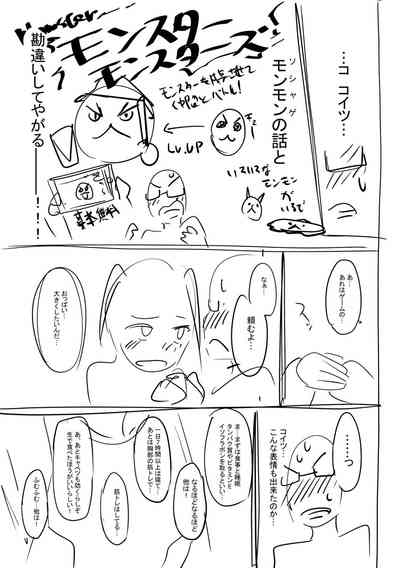 …コ コイツ…
モンモンの話と
ソシャゲ
勘違いしてやがる
――！！！
モンスター
モンスターズ
モンスターを
くりひろげてバトル！
LV.UP
いろいろな
モンモン
が
いるぞ
基本無料
あ…
あれはゲームの…
なぁ…
頼むよ…
おっぱい…
大きくしたいんだ…
………っ
コイツ…
こんな表情も出来たのか…
ま…まずは食事と睡眠
タンパク質やビタミンと
イソフラボンを取るといい…
なるほどなるほど
他は！
一日７時間以上は寝て…
あとは胸部の筋トレで…
筋トレはしてる…
あ、あとキャベツも効くらしぞ
生で食べたほうがいいらしい！
ふむふむ 他は！